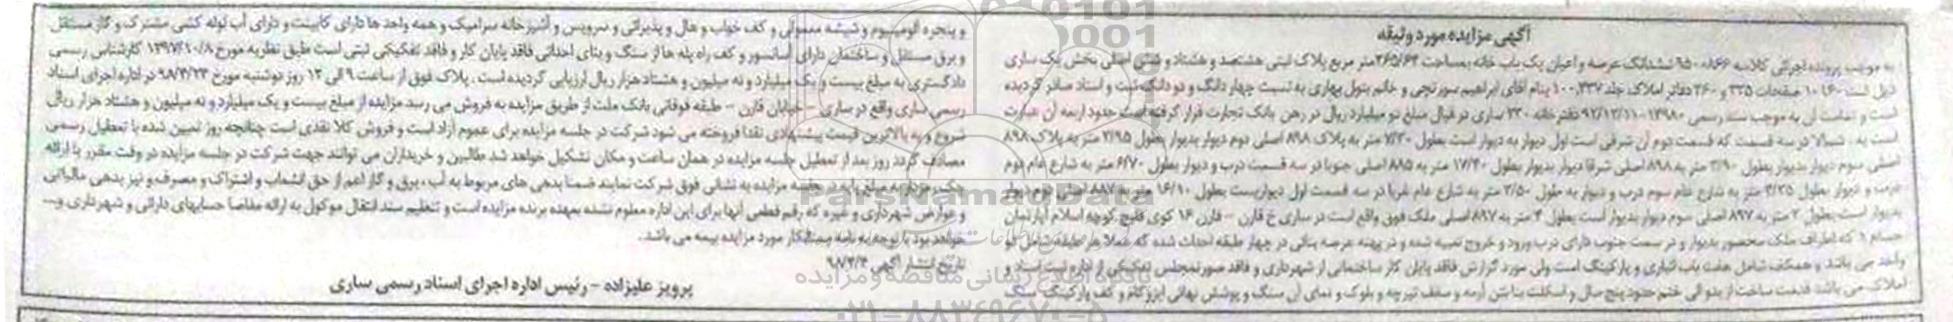 آگهی مزایده مورد وثیقه
به موجب پرونده اجرائی کلاسه ۹۵۰۰۸۶۶ ششدانگ عرصه و اعیان یک باب خانه بمساحت ۲۶۵/۶۴ متر مربع پلاک ثبتی هشتصد و هشتاد و شش اصلی بخش یک ساری
ذیل ثبت صفحات ۳۳۵ و ۲۶۰ دفاتر املاک جلد بنام آقای ابراهیم سورتچی و خانم بتول بهاری به نسبت چهار دانگ و دو دانگ ثبت و اسناد صادر گردیده
است و تمامت آن به موجب سند رسمی ۱۳۹۸۰-۹۲/۱۲/۱۱ دفترخانه ۲۳۰ ساری در قبال مبلغ دو میلیارد ریال در رهن بانک تجارت قرار گرفته است حدود اربعه آن عبارت
است به: شمالا در سه قسمت که قسمت دوم آن شرقی است اول دیوار به دیوار است بطول ۷/۳۰ متر به پلاک ۸۹۸ اصلی دوم دیوار بدیوار بطول ۲/۹۵ متر به پلاک ۸۹۸
اصلی سوم دیوار بدیوار بطول ۲/۹۰ متر به ۸۹۸ اصلی شرقا دیوار بدیوار بطول ۱۷/۴۰ متر به ۸۸۵ اصلی جنوبا در سه قسمت درب و دیوار بطول ۶/۷۰ متر به شارع عام دوم
درب و دیوار بطول ۳/۲۵ متر به شارع عام سوم درب و دیوار به طول ۲/۵۰ متر به شارع عام غربا در سه قسمت اول دیواریست بطول ۱۶/۱۰ متر به ۸۸۷ اصلی دوم دیوار
بدیوار است بطول ۲ متر به ۸۹۷ اصلی سوم دیوار بدیوار است بطول ۴ متر به ۸۹۷ اصلی ملک فوق واقع است در ساری خ قارن – قارن ۱۶ کوی قلیچ کوچه اسلام آپارتمان
حسام ۱ که اطراف ملک محصور بدیوار و در سمت جنوب دارای درب ورود و خروج تعبیه شده و در پهنه عرصه بنائی در چهار طبقه احداث شده که عملا هر طبقه شامل دو
واحد می باشد و همکف شامل هفت باب انباری و پارکینگ است ولی مورد گزارش فاقد پایان کار ساختمانی از شهرداری و فاقد صورتمجلس تفکیکی از اداره ثبت اسناد و
املاک می باشد قدمت ساخت از بدو الی ختم حدود پنج سال و اسکلت بتن آرمه و سقف تیرچه و بلوک و نمای آن سنگ و پوشش نهائی ایزوگام و کف پارکینگ سنگ
و پنجره آلومینیوم و شیشه معمولی و کف خواب و هال و پذیرائی و سرویس و آشپزخانه سرامیک و همه واحد ها دارای کابینت و دارای آب لوله کشی مشترک و گاز مستقل
و برق مستقل و ساختمان دارای آسانسور و کف راه پله ها از سنگ و بنای احداثی فاقد پایان کار و فاقد تفکیکی ثبتی است طبق نظریه مورخ ۱۳۹۷/۱۰/۸ کارشناس رسمی
دادگستری به مبلغ بیست و یک میلیارد و نه میلیون و هشتاد هزار ریال ارزیابی گردیده است. پلاک فوق از ساعت ۹ الی ۱۲ روز دوشنبه مورخ ۹۸/۴/۲۴ در اداره اجرای اسناد
رسمی ساری واقع در ساری – خیابان قارن – طبقه فوقانی بانک ملت از طریق مزایده به فروش می رسد مزایده از مبلغ بیست و یک میلیارد و نه میلیون و هشتاد هزار ریال
شروع و به بالاترین قیمت پیشنهادی نقدا فروخته می شود شرکت در جلسه مزایده برای عموم آزاد است و فروش کلا نقدی است چنانچه روز تعیین شده با تعطیل رسمی
مصادف گردد روز بعد از تعطیل جلسه مزایده در همان ساعت و مکان تشکیل خواهد شد طالبین و خریداران می توانند جهت شرکت در جلسه مزایده در وقت مقرر با ارائه
چک به مبلغ پایه در جلسه مزایده به نشانی فوق شرکت نمایند ضمنا بدهی های مربوط به آب، برق و گاز اعم از حق انشعاب و اشتراک و مصرف و نیز بدهی مالیاتی
و عوارض شهرداری و غیره که رقم قطعی آنها برای این اداره معلوم نشده بعهده برنده مزایده است و تنظیم سند انتقال موکول به ارائه مفاصا حسابهای دارائی و شهرداری و...
خواهد بود با توجه به نامه بستانکار مورد مزایده بیمه می باشد.
تاریخ انتشار آگهی ۹۸/۴/۴
پرویز علیزاده – رئیس اداره اجرای اسناد رسمی ساری
ParsNamadData
پایگاه اطلاع رسانی مناقصه و مزایده
۰۲۱-۸۸۳۴۹۶۷۰-۵